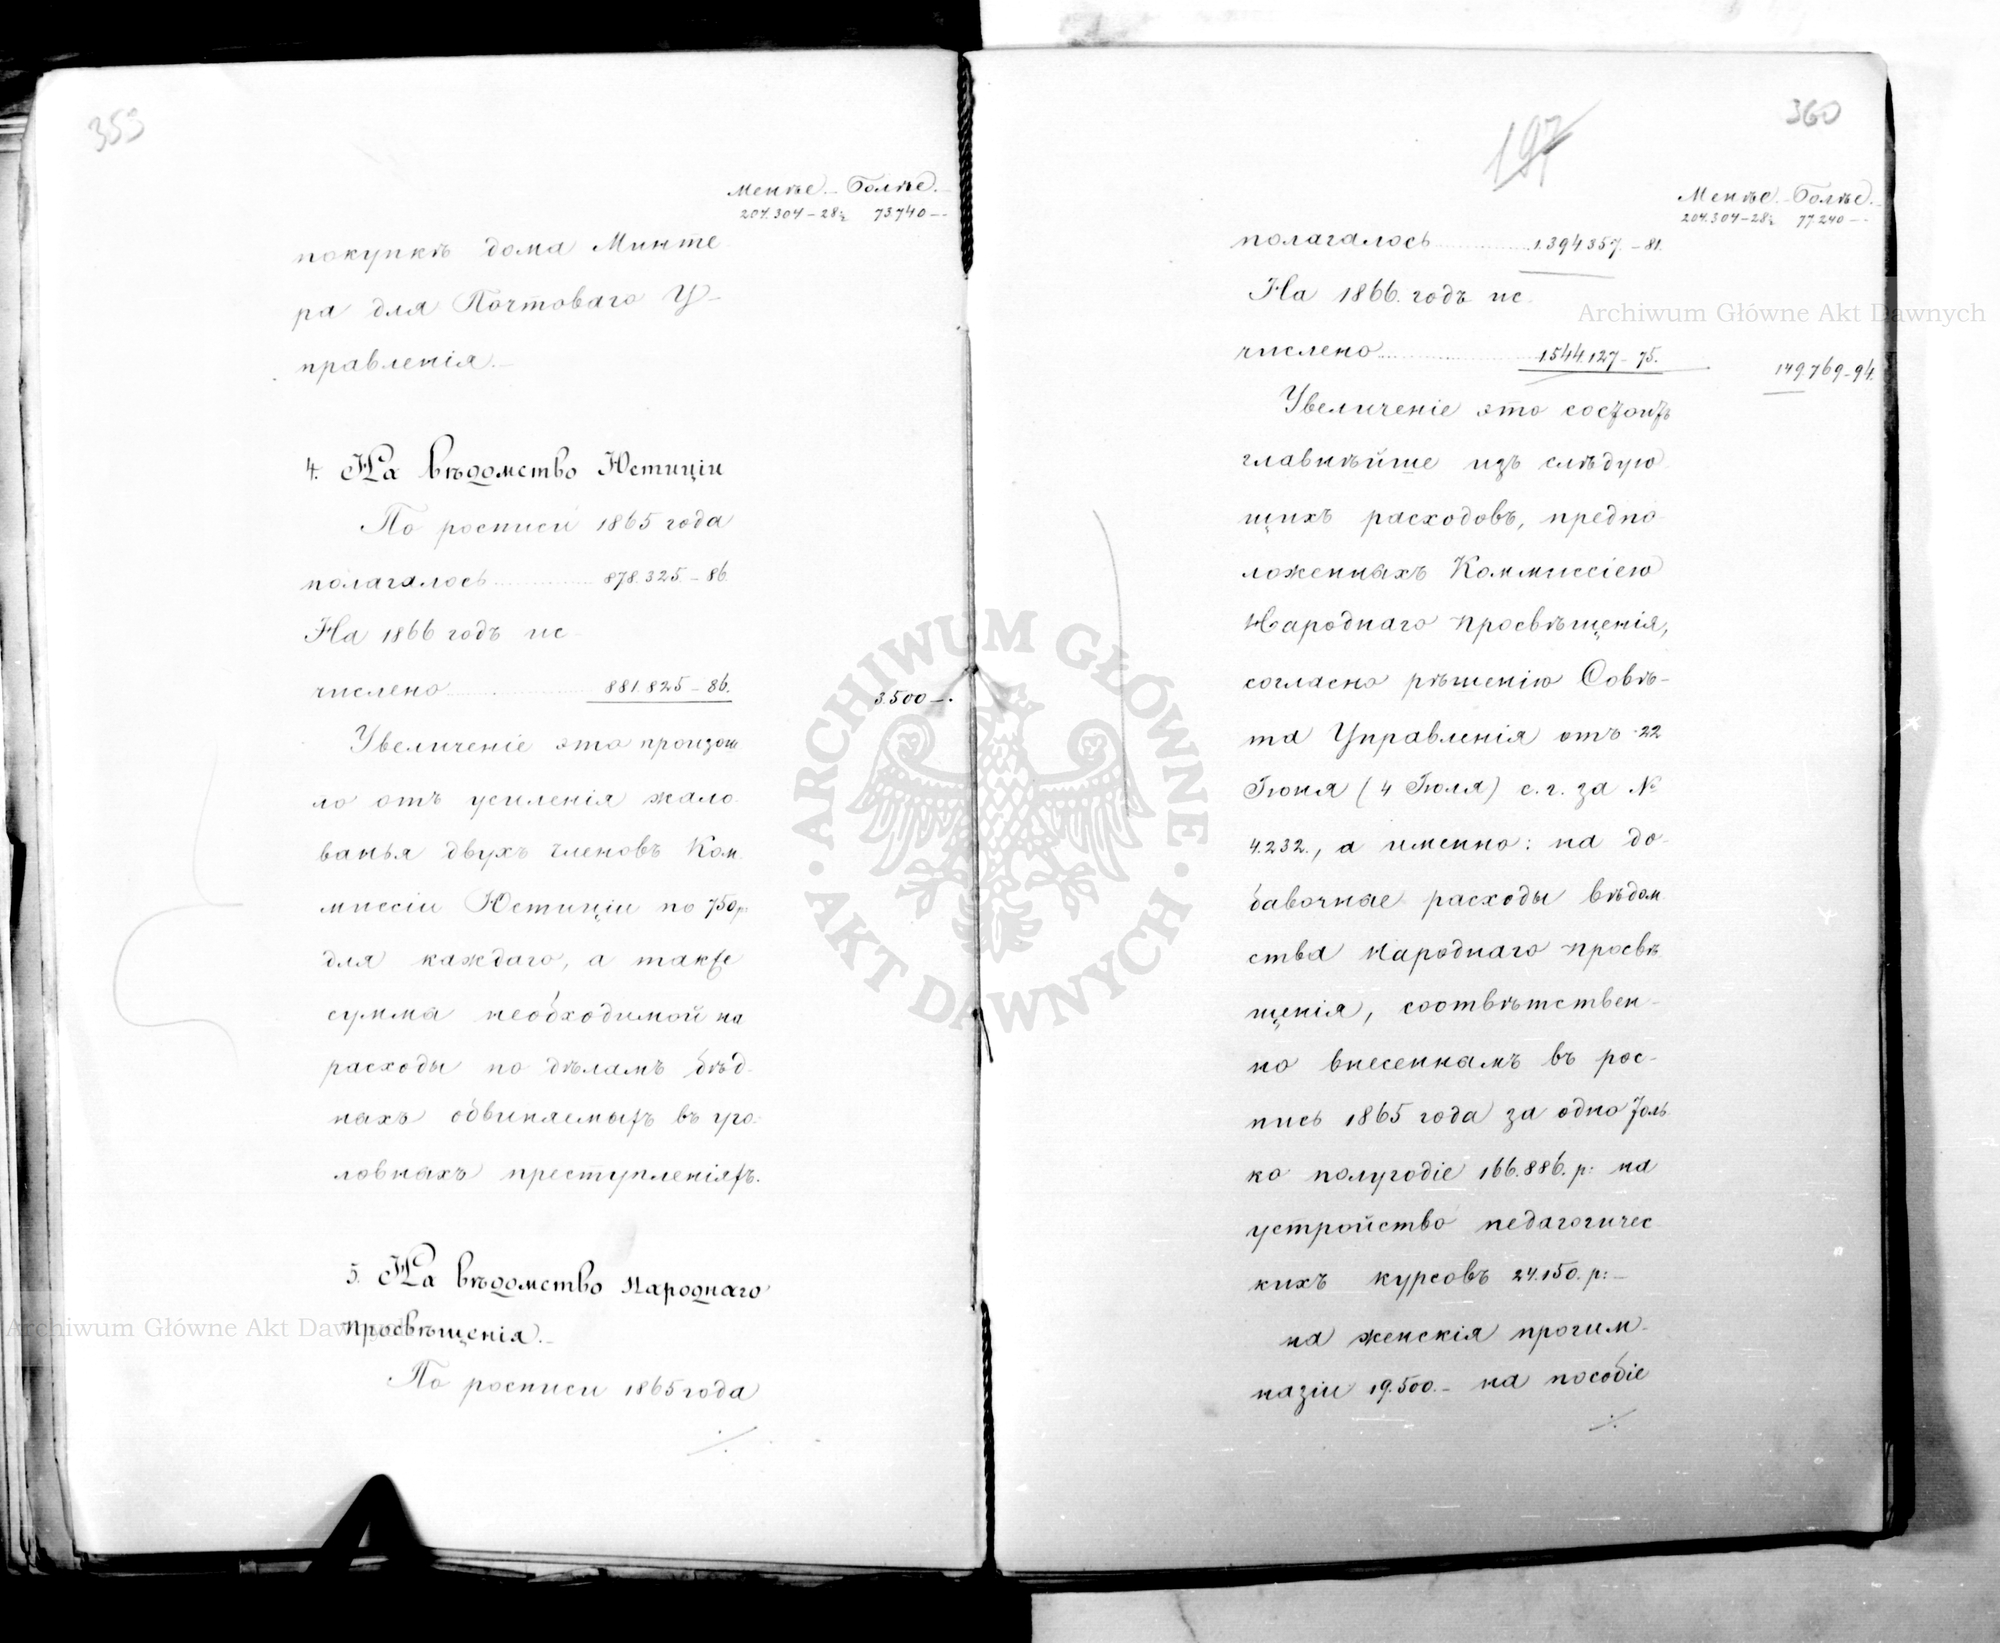 359
Менѣе. — Болѣе.
204.304 — 28½ 73.740 —
покупкѣ дома Минте
ра для Почтоваго У-
правленія. —
4. На вѣдомство Юстиціи
По росписи 1865 года
полагалось 878.325 — 86.
На 1866 годъ ис-
числено 881.825 — 86.
3.500 — .
Увеличеніе это произош
ло отъ усиленія жало
ванья двухъ членовъ Ком
миссіи Юстиціи по 750 р.
для каждаго, а также
сумма необходимой на
расходы по дѣламъ бѣд-
ныхъ обвиняемыхъ въ уго-
ловныхъ преступленіяхъ.
5. На вѣдомство Народнаго
Просвѣщенія. —
По росписи 1865 года
./.
360
197
Менѣе. — Болѣе.
204.304 — 28½ 77.240 —
полагалось 1.394.357. — 81.
На 1866. годъ ис-
числено 1.544.127 — 75.
149.769 — 94.
Увеличеніе это состоитъ
главнѣйше изъ слѣдую
щихъ расходовъ, предпо-
ложенныхъ Коммиссіею
Народнаго Просвѣщенія,
согласно рѣшенію Совѣ-
та Управленія отъ 22
Іюня (4 Іюля) с. г. за №
4.232., а именно: на до-
бавочные расходы вѣдом
ства Народнаго Просвѣ
щенія, соотвѣтствен-
но внесеннымъ въ рос-
пись 1865 года за одно толь
ко полугодіе 166.886. р: на
устройство педагогичес
кихъ курсовъ 24.150. р: —
на женскія прогим-
назіи 19.500. — на пособіе
./.
Archiwum Główne Akt Dawnych
Archiwum Główne Akt Dawnych
ARCHIWUM GŁÓWNE · AKT DAWNYCH ·